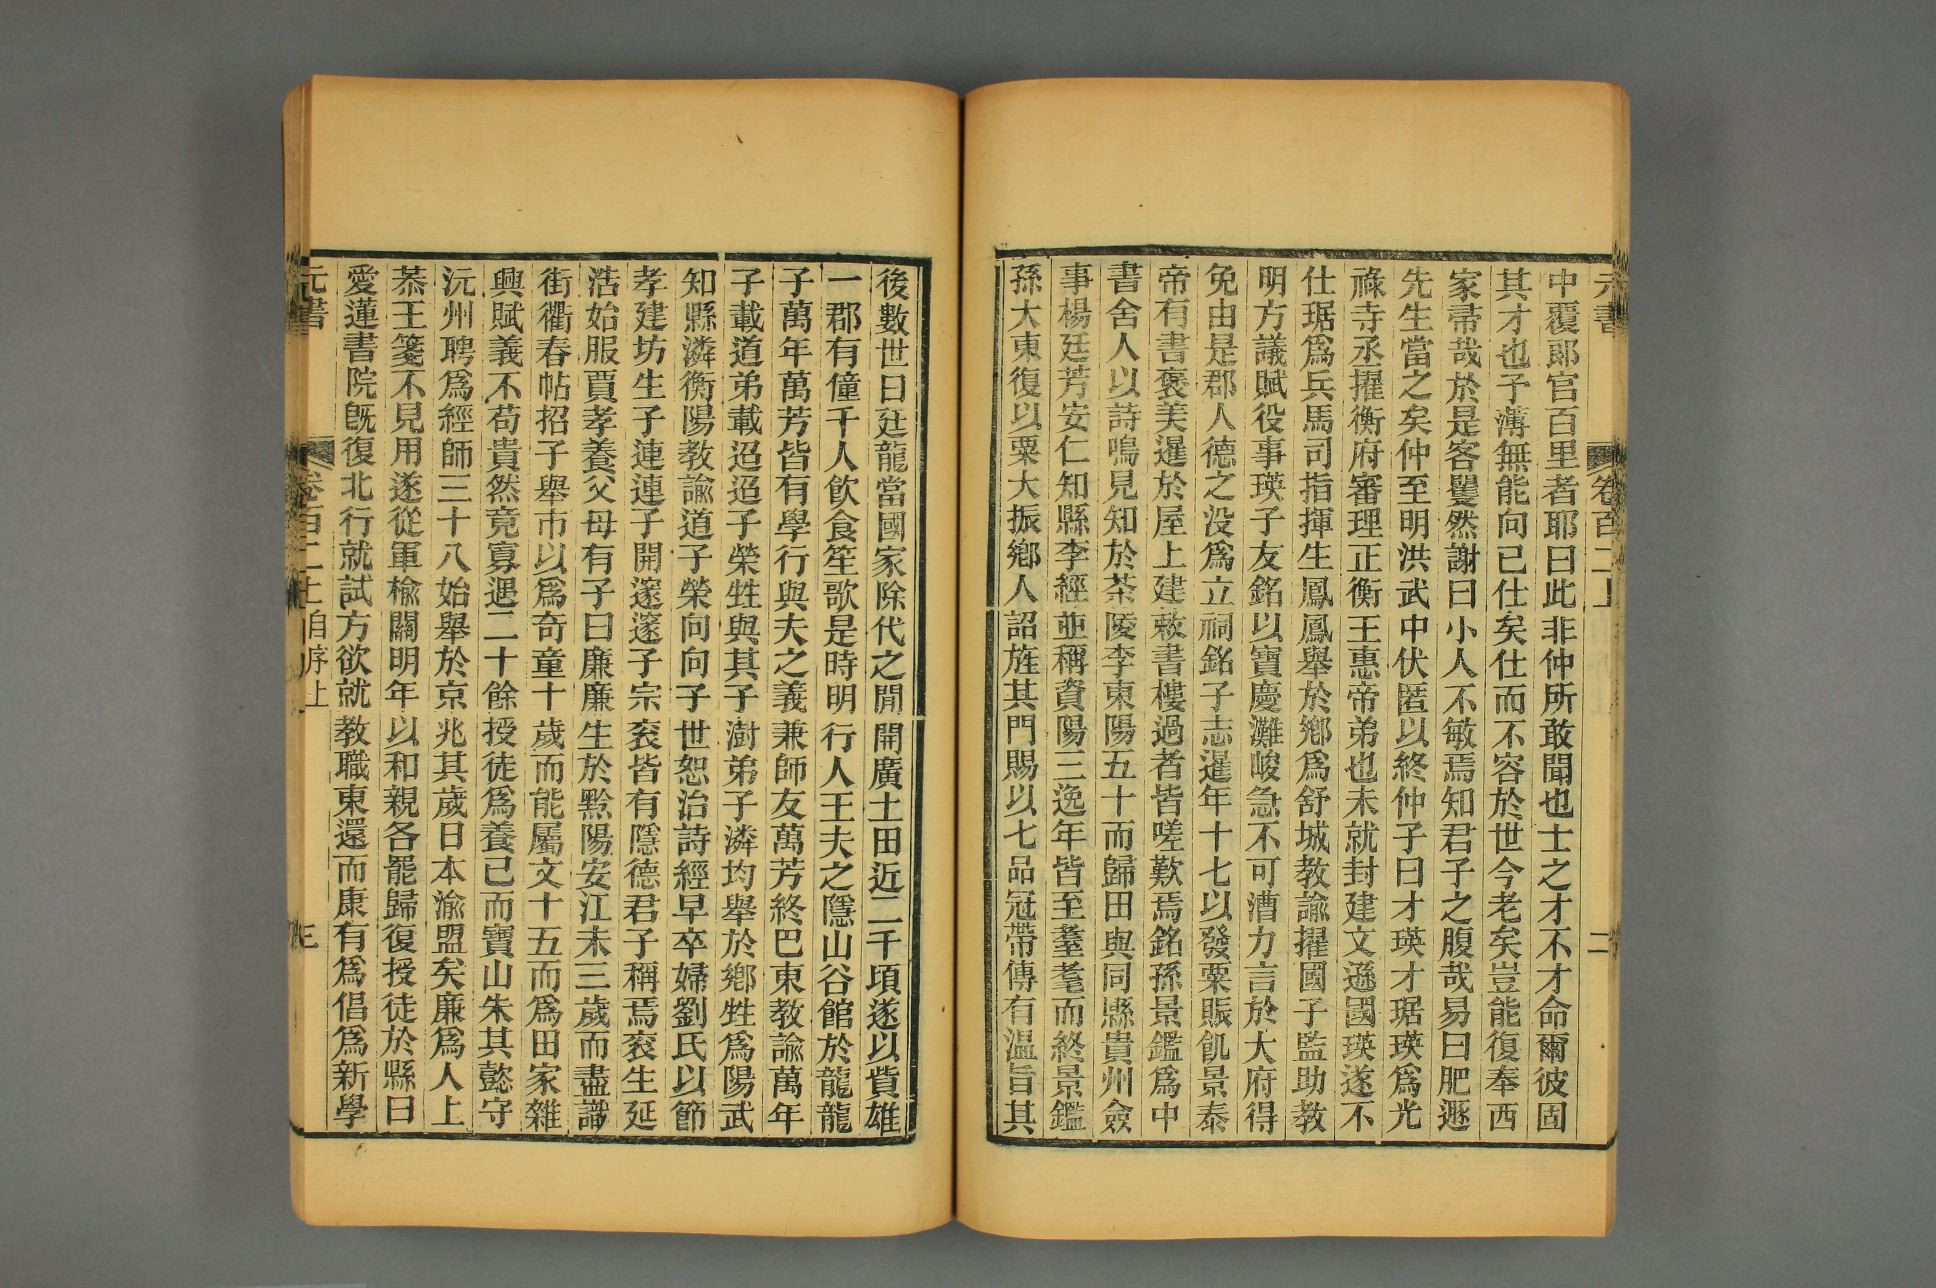 元書
卷百二上
二
中覆郎官百里者耶曰此非仲所敢聞也士之才不才命爾彼固
其才也予薄無能向已仕矣仕而不容於世今老矣豈能復奉西
家帚哉於是客矍然謝曰小人不敏焉知君子之腹哉易曰肥遯
先生當之矣仲至明洪武中伏匿以終仲子曰才瑛才琚瑛爲光
祿寺丞擢衡府審理正衡王惠帝弟也未就封建文遜國瑛遂不
仕琚爲兵馬司指揮生鳳鳳舉於鄉爲舒城教諭擢國子監助教
明方議賦役事瑛子友銘以寶慶灘峻急不可漕力言於大府得
免由是郡人德之没爲立祠銘子志暹年十七以發粟賑飢景泰
帝有書褒美暹於屋上建敕書樓過者皆嗟歎焉銘孫景鑑爲中
書舍人以詩鳴見知於茶陵李東陽五十而歸田與同縣貴州僉
事楊廷芳安仁知縣李經並稱資陽三逸年皆至耋耄而終景鑑
孫大東復以粟大振鄉人詔旌其門賜以七品冠帶傳有溫旨其
後數世曰廷龍當國家除代之閒開廣土田近二千頃遂以貲雄
一郡有僮千人飮食笙歌是時明行人王夫之隱山谷館於龍龍
子萬年萬芳皆有學行與夫之義兼師友萬芳終巴東教諭萬年
子載道弟載迢迢子榮甡與其子澍弟子潾均舉於鄉甡爲陽武
知縣潾衡陽教諭道子榮向向子世恕治詩經早卒婦劉氏以節
孝建坊生子連連子開邃邃子宗衮皆有隱德君子稱焉衮生延
浩始服賈孝養父母有子曰廉廉生於黔陽安江未三歲而盡識
街衢春帖招子舉市以爲奇童十歲而能屬文十五而爲田家雜
興賦義不苟貴然竟寡遇二十餘授徒爲養已而寶山朱其懿守
沅州聘爲經師三十八始舉於京兆其歲日本渝盟矣廉爲人上
恭王箋不見用遂從軍榆關明年以和親各罷歸復授徒於縣曰
愛蓮書院旣復北行就試方欲就教職東還而康有爲倡爲新學
元書
卷百二上自序上
三